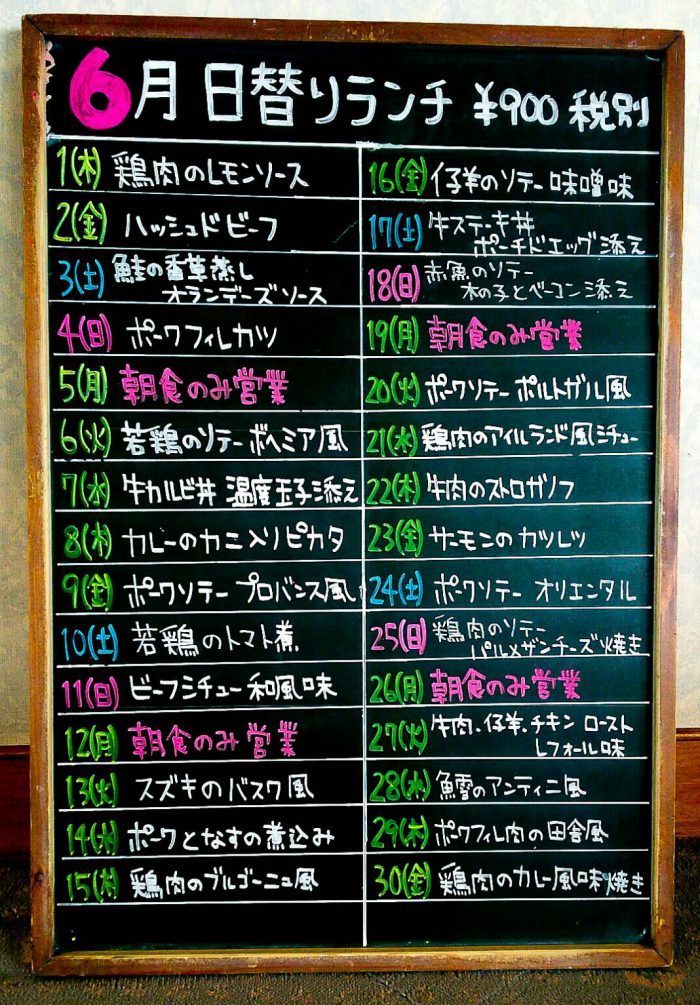 6月 日替りランチ ¥900 税別
1(木) 鶏肉のレモンソース
2(金) ハッシュドビーフ
3(土) 鮭の香草蒸し
オランデーズソース
4(日) ポークフィレカツ
5(月) 朝食のみ営業
6(火) 若鶏のソテー ボヘミア風
7(水) 牛カルビ丼 温度玉子添え
8(木) カレーのカニ入りピカタ
9(金) ポークソテー プロバンス風
10(土) 若鶏のトマト煮
11(日) ビーフシチュー 和風味
12(月) 朝食のみ営業
13(火) スズキのバスク風
14(水) ポークとなすの煮込み
15(木) 鶏肉のブルゴーニュ風
16(金) 仔羊のソテー 味噌味
17(土) 牛ステーキ丼
ポーチドエッグ添え
18(日) 赤魚のソテー
木の子とベーコン添え
19(月) 朝食のみ営業
20(火) ポークソテー ポルトガル風
21(水) 鶏肉のアイルランド風シチュー
22(木) 牛肉のストロガノフ
23(金) サーモンのカツレツ
24(土) ポークソテー オリエンタル
25(日) 鶏肉のソテー
パルメザンチーズ焼き
26(月) 朝食のみ営業
27(火) 牛肉、仔羊、チキン ロースト
レフォール味
28(水) 鱈のアンティニ風
29(木) ポークフィレ肉の田舎風
30(金) 鶏肉のカレー風味焼き